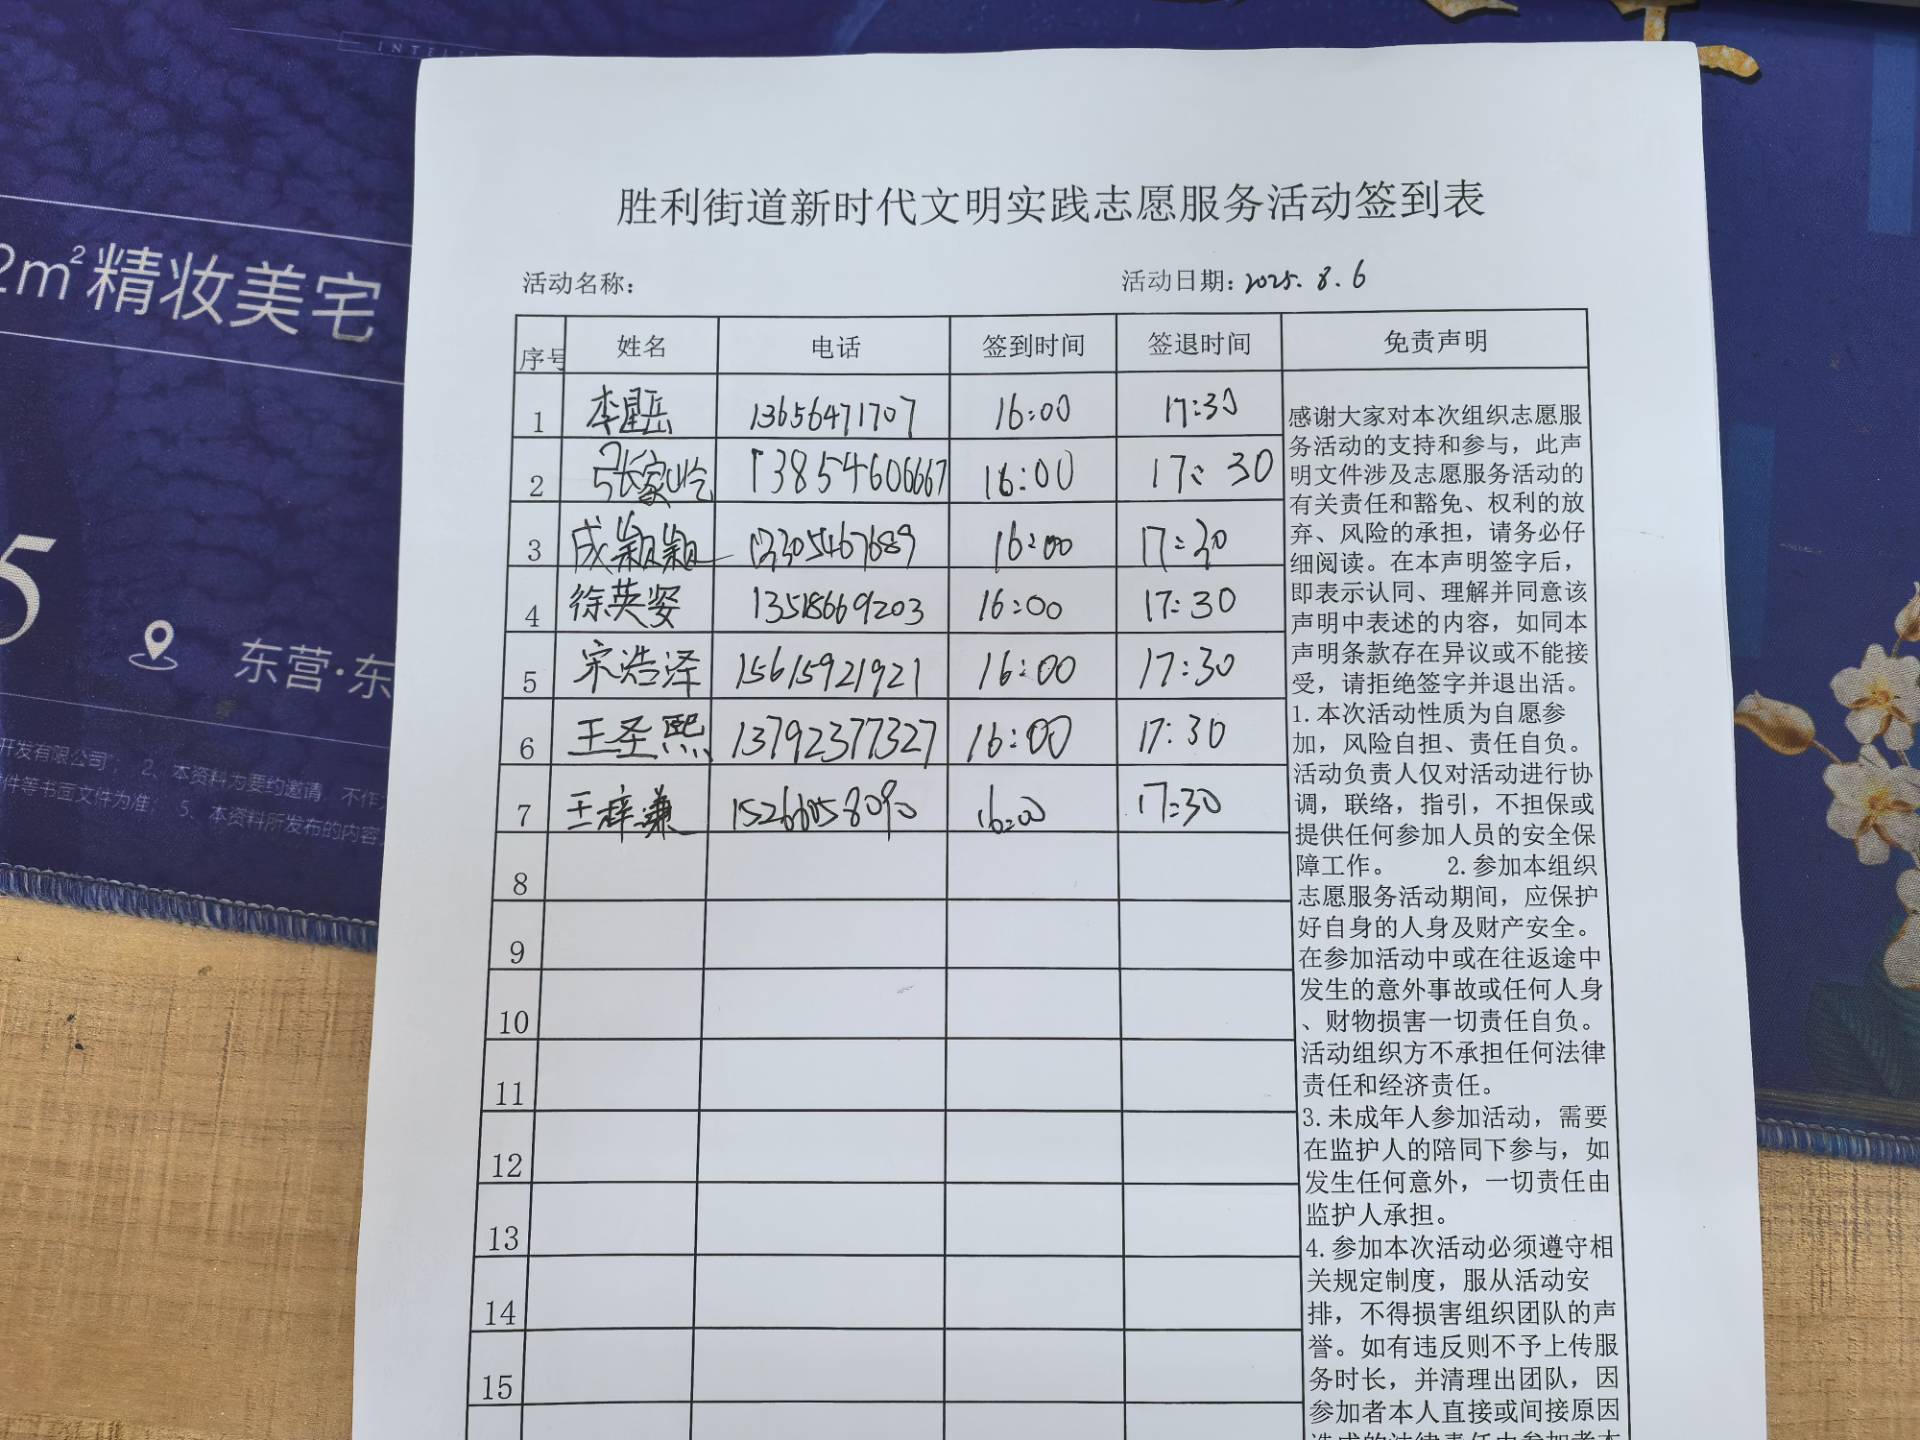 INTEL
2m²精妆美宅
5
东营·东
开发有限公司"; 2、本资料为要约邀请，不作
件等书面文件为准; 5、本资料所发布的内容
胜利街道新时代文明实践志愿服务活动签到表
活动名称： 活动日期：2025.8.6
序号 姓名 电话 签到时间 签退时间 免责声明
1 李星岳 13656471707 16:00 17:30
2 张家屹 13854606667 16:00 17:30
3 成颖颖 13305467689 16:00 17:30
4 徐英姿 13518669203 16:00 17:30
5 宋浩泽 15615921921 16:00 17:30
6 王圣熙 13792377327 16:00 17:30
7 王梓谦 15266058090 16:00 17:30
8
9
10
11
12
13
14
15
感谢大家对本次组织志愿服
务活动的支持和参与，此声
明文件涉及志愿服务活动的
有关责任和豁免、权利的放
弃、风险的承担，请务必仔
细阅读。在本声明签字后，
即表示认同、理解并同意该
声明中表述的内容，如同本
声明条款存在异议或不能接
受，请拒绝签字并退出活。
1.本次活动性质为自愿参
加，风险自担、责任自负。
活动负责人仅对活动进行协
调，联络，指引，不担保或
提供任何参加人员的安全保
障工作。 2.参加本组织
志愿服务活动期间，应保护
好自身的人身及财产安全。
在参加活动中或在往返途中
发生的意外事故或任何人身
、财物损害一切责任自负。
活动组织方不承担任何法律
责任和经济责任。
3.未成年人参加活动，需要
在监护人的陪同下参与，如
发生任何意外，一切责任由
监护人承担。
4.参加本次活动必须遵守相
关规定制度，服从活动安
排，不得损害组织团队的声
誉。如有违反则不予上传服
务时长，并清理出团队，因
参加者本人直接或间接原因
造成的法律责任由参加者本